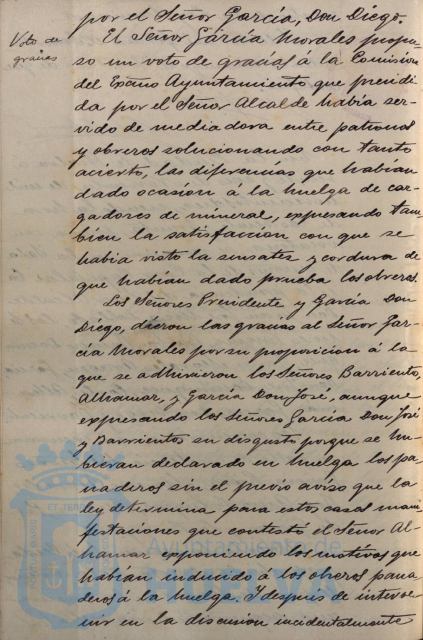 por el Señor García, Don Diego.
Voto de
gracias
El Señor García Morales propu-
so un voto de gracias á la Comision
del Excmo Ayuntamiento que presidi-
da por el Señor Alcalde habia ser-
vido de mediadora entre patronos
y obreros solucionando con tanto
acierto, las diferencias que habian
dado ocasion á la huelga de car-
gadores de mineral, expresando tam-
bien la satisfaccion con que se
habia visto la sensatez y cordura de
que habian dado prueba los obreros.
Los Señores Presidente y García Don
Diego, dieron las gracias al Señor Gar-
cía Morales por su proposicion á la
que se adhirieron los Señores Barriento,
Alhamar, y García Don José, aunque
expresando los Señores García Don José
y Barrientos su disgusto porque se hu-
bieran declarado en huelga los pa-
naderos sin el previo aviso que la
ley determina para estos casos mani-
festaciones que contestó el Señor Al-
hamar exponiendo los motivos que
habian inducido á los obreros pana-
deros á la huelga. Y despues de interve-
nir en la discusion incidentalmente